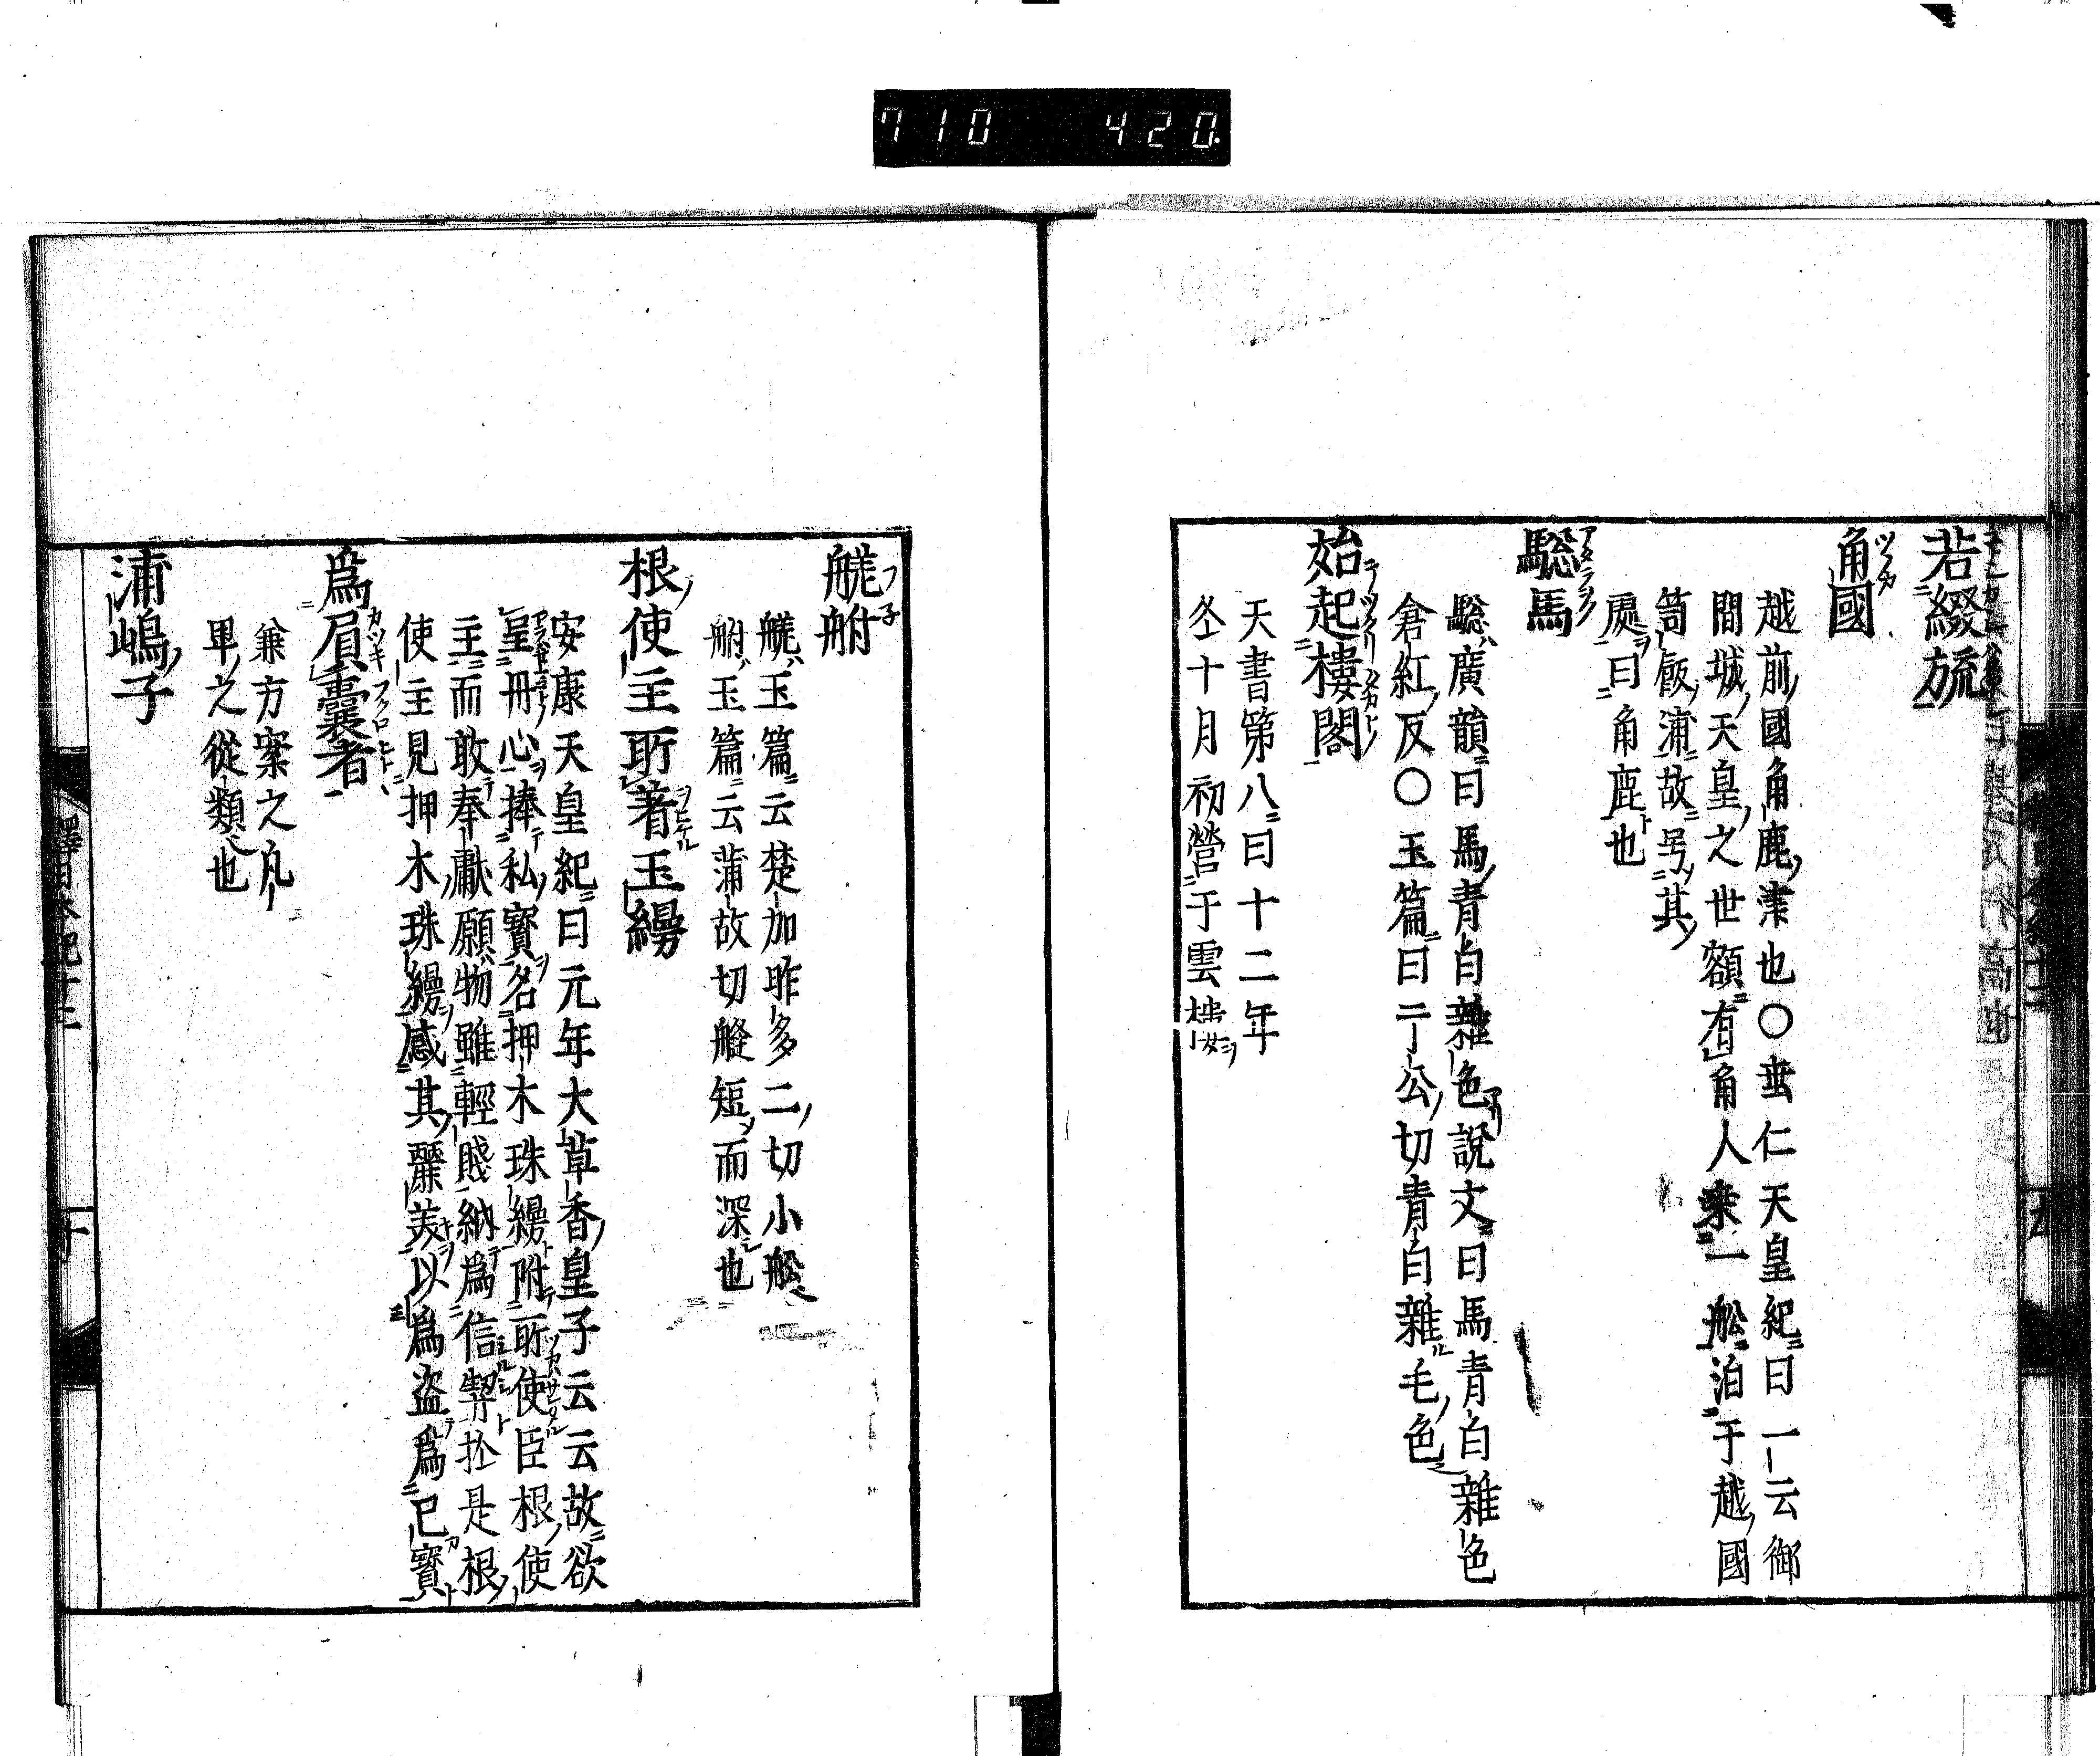 710 420
若綴旒
角國
越前國角鹿津也〇垂仁天皇紀曰一云御
間城天皇之世額有角人来一舩泊于越國
笥飯浦故号其
處曰角鹿也
驄馬
驄廣韻曰馬青白雜色說文曰馬青白雜色
倉紅反〇玉篇曰二公切青白雜毛色
始起樓閣
天書第八曰十二年
冬十月初營于雲樓
艖舼
艖玉篇云楚加昨多二切小舩
玉篇云蒲故切艇短而深也
根使主所著玉縵
安康天皇紀曰元年大草香皇子云云故欲
呈丹心捧私寳名押木珠縵附所使臣根使
主而敢奉獻願物雖輕賤納爲信契於是根
使主見押木珠縵感其麗美以爲盗爲己寳
爲負嚢者
兼方案之凡
卑之從類也
浦嶋子